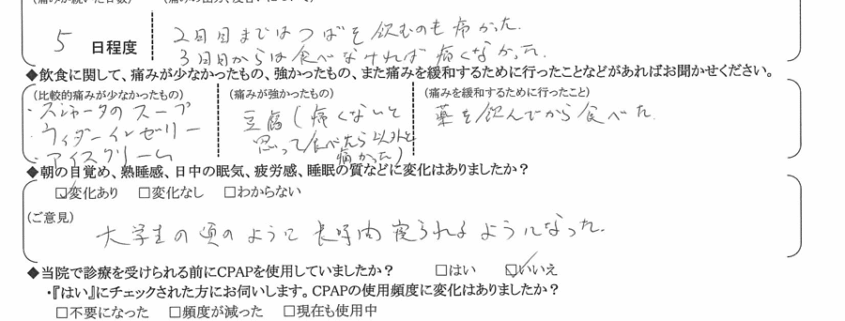 (痛みが続いた日数)
5 日程度 2日目まではつばを飲むのも痛かった.
3日目からは食べなければ痛くなかった.
◆飲食に関して、痛みが少なかったもの、強かったもの、また痛みを緩和するために行ったことなどがあればお聞かせください。
(比較的痛みが少なかったもの) (痛みが強かったもの) (痛みを緩和するために行ったこと)
・スジャータのスープ 豆腐(痛くないと 薬を飲んでから食べた
・ウイダーインゼリー 思って食べたら以外と
・アイスクリーム 痛かった)
◆朝の目覚め、熟睡感、日中の眠気、疲労感、睡眠の質などに変化はありましたか?
☑変化あり □変化なし □わからない
(ご意見)
大学生の頃のように長時間寝られるようになった.
◆当院で診療を受けられる前にCPAPを使用していましたか? □はい ☑いいえ
・『はい』にチェックされた方にお伺いします。CPAPの使用頻度に変化はありましたか?
□不要になった □頻度が減った □現在も使用中